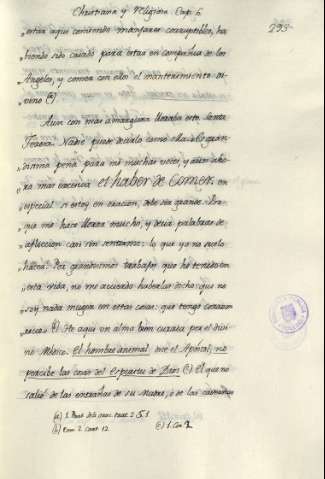 Christiana y Religiosa Cap. 6
295
estar aqui comiendo manjares corruptibles, ha
viendo sido criado para estar en compañia de los
Angeles, y comer con ellos el mantenimiento di
vino (a)
Aun con mas amargura lloraba esto Santa
Teresa. Nadie puede decirlo como ella: Es gran
disima pena para mi muchas veces, y aun aho
ra mas excesiva el haber de comer, en
especial si estoy en oracion, debe ser grande. Por
que me hace llorar mucho, y decir palabras de
afliccion casi sin sentirme: lo que yo no suelo
hacer. Por grandisimos trabajos que he tenido en
esta vida, no me acuerdo haberlas dicho; que no
soy nada muger en estas cosas: que tengo corazon
recio. () He aqui un alma bien curada por el divi
no Medico. El hombre animal dice el Apostol, no
percibe las cosas del Espiritu de Dios () El que no
salió de las entrañas de su Madre, ó de las
(a) S. Bernd.
(b)
(c) 1. Cor. 2